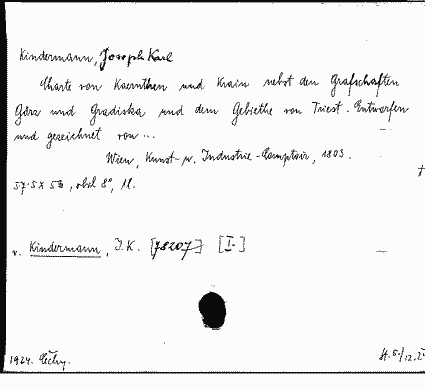 Kindermann, Joseph Karl
Charte von Kaernthen und Krain nebst den Grafschaften
Görz und Gradiska und dem Gebiethe von Triest. Entworfen
und gezeichnet von ...
Wien, Kunst- u. Industrie-Comptoir, 1803.
57.5 x 50, obl 8°, 1l.
v. Kindermann, J.K. [78207] [I.]
1924. Čechy.